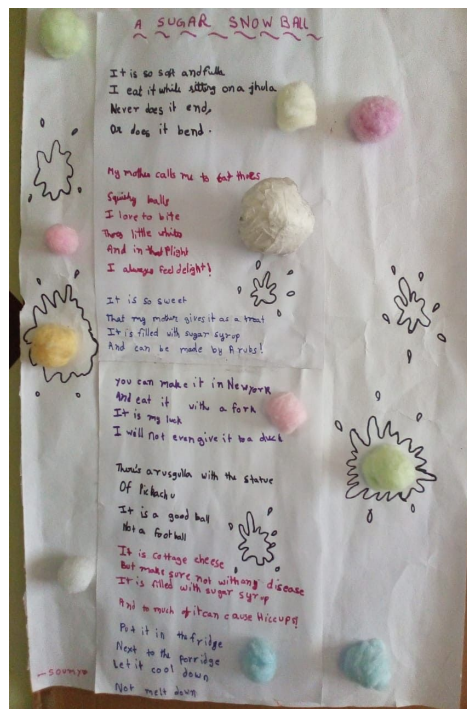 A SUGAR SNOW BALL
It is so soft and full
I eat it while sitting on a jhula
Never does it end,
Or does it bend.
My mother calls me to eat
Squishy balls
I love to bite
little white
And in flight
I always feel delight!
It is so sweet
That my mother gives it as a treat
It is filled with sugar syrup
And can be made by
you can make it in Newyork
And eat it with a fork
It is my luck
I will not even give it to a duck
There's a rusgulla with the statue
Of Pickachu
It is a good ball
Not a football
It is cottage cheese
But make sure not with any disease
It is filled with sugar syrup
And to much of it can cause Hiccups!
Put it in the fridge
Next to the porridge
Let it cool down
Not melt down
-soumya